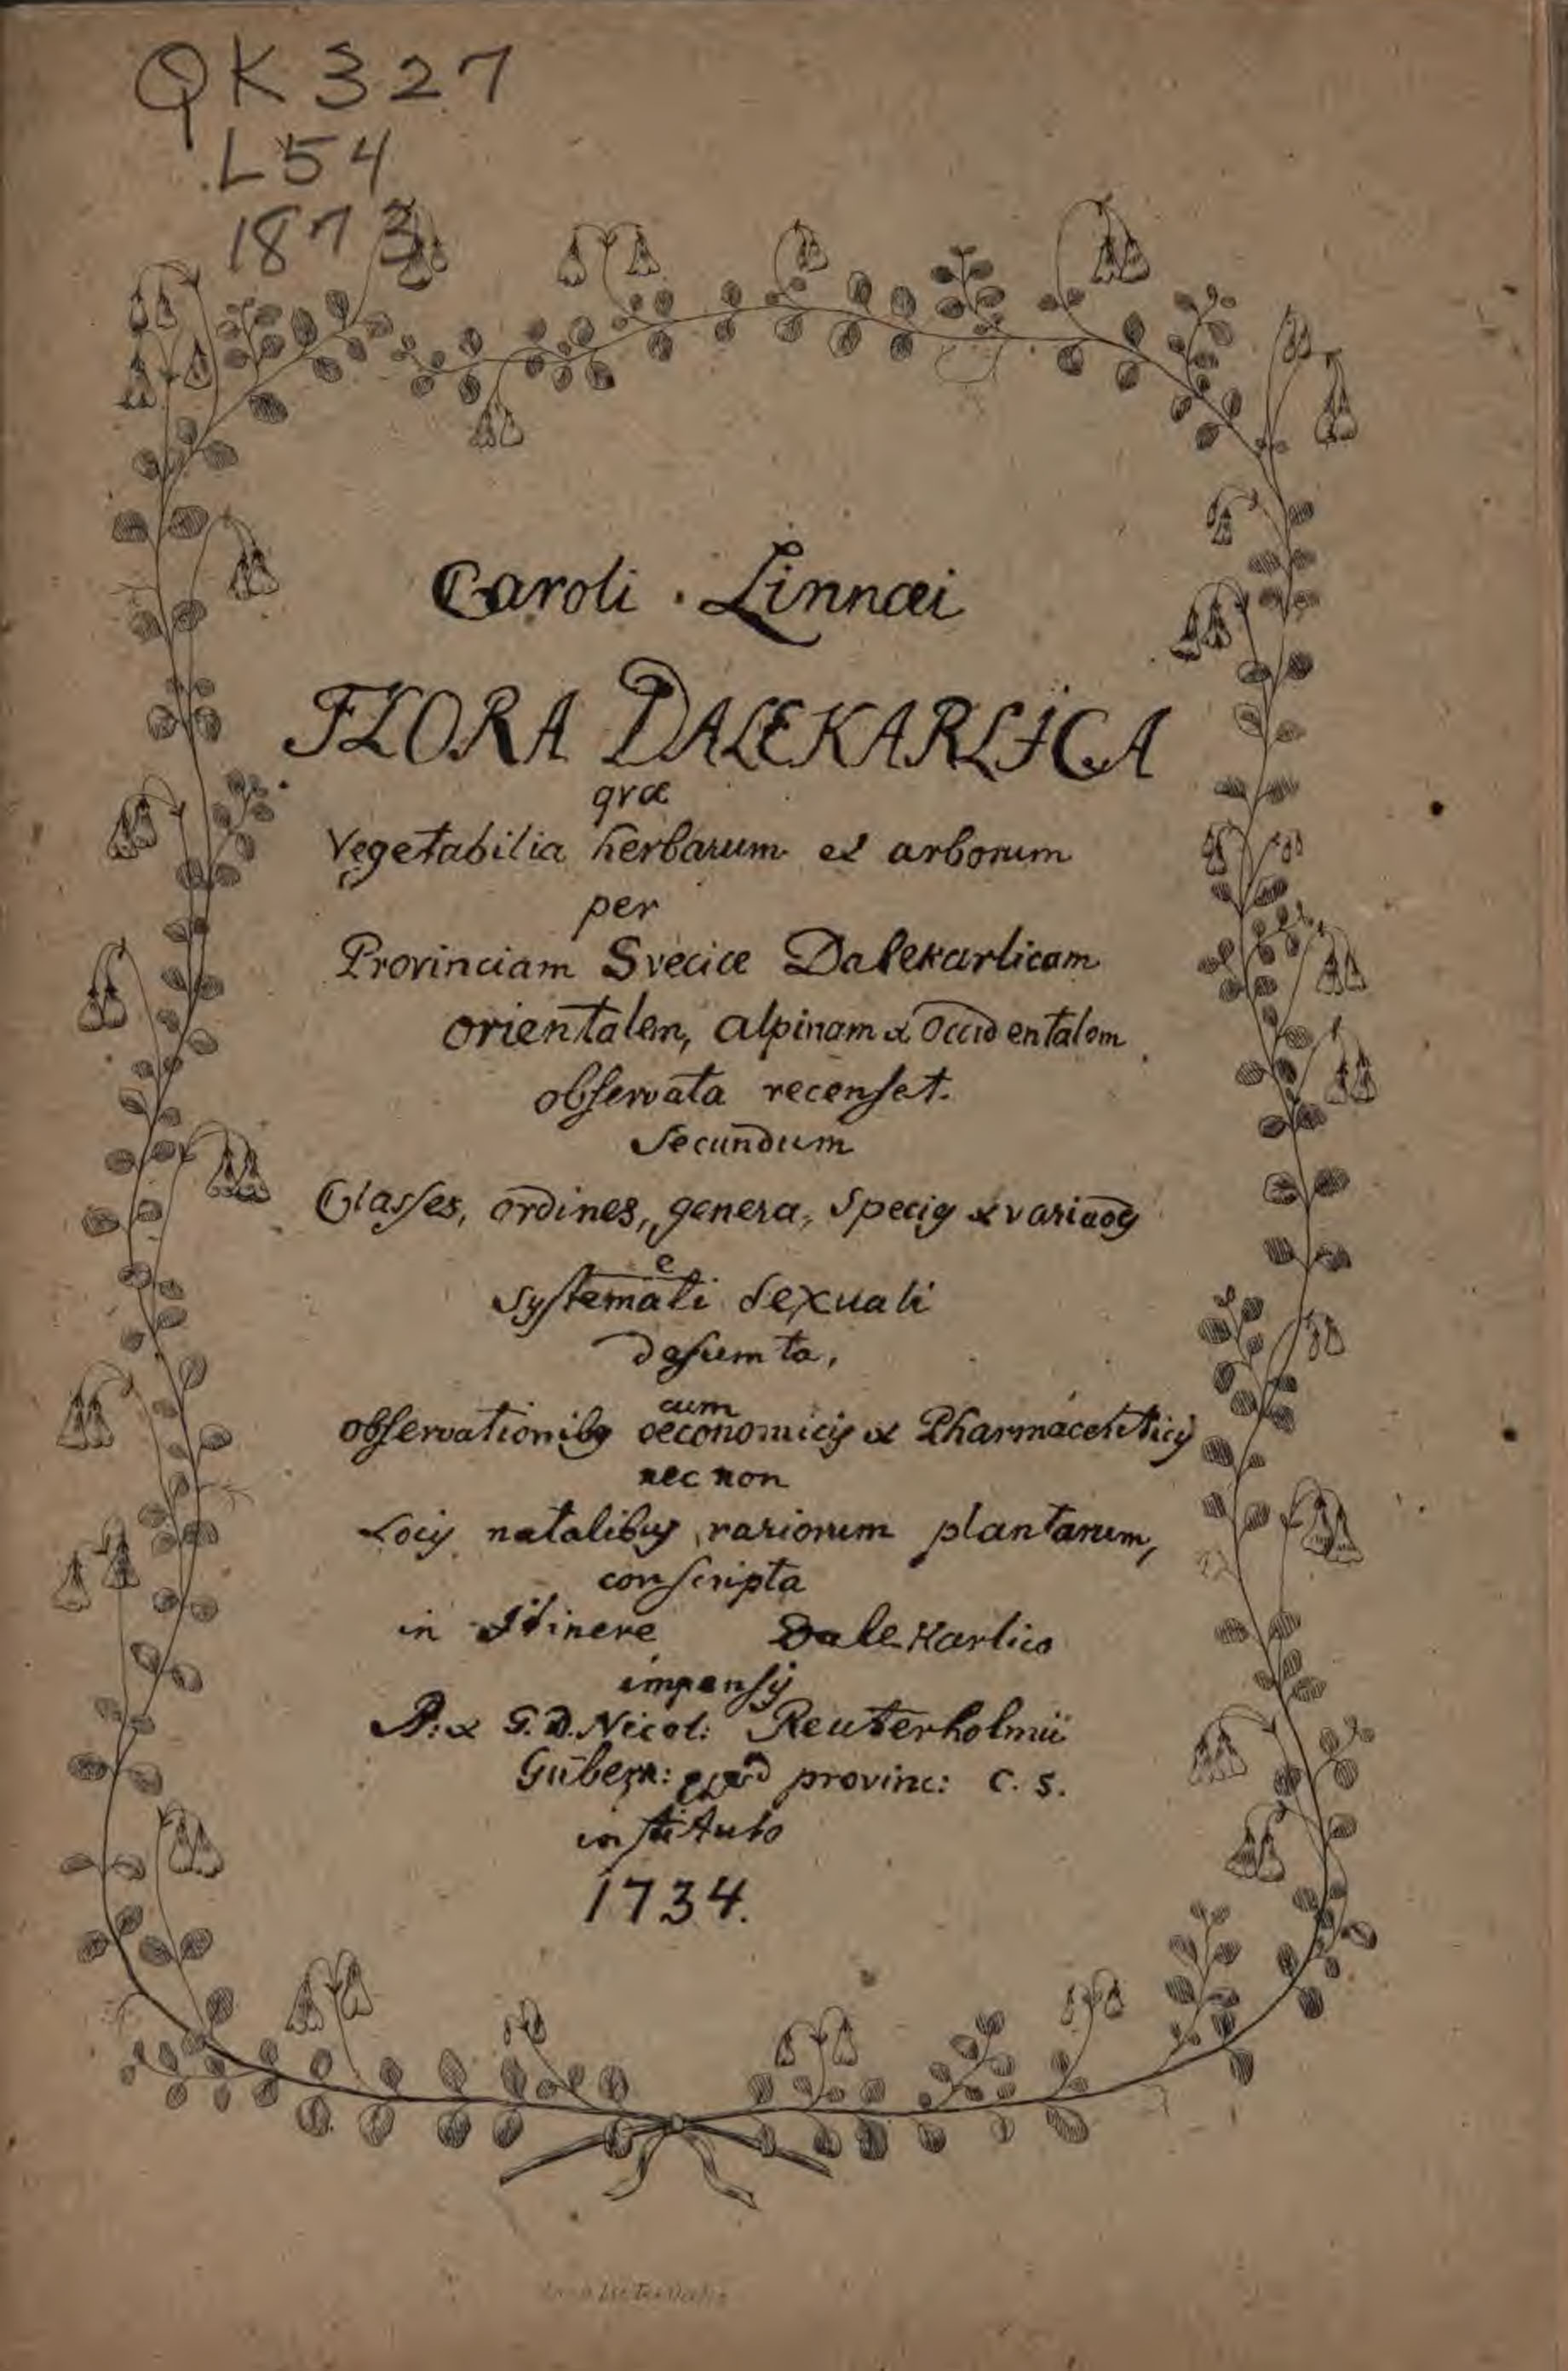 QK327
.L54
1873
Caroli. Linnæi
FLORA DALEKARLICA
qvæ
Vegetabilia herbarum et arborum
per
Provinciam Sveciæ Dalekarlicam
orientalem, alpinam & Occidentalem
obſervata recenſet.
Secundum
Claſſes, ordines, genera, Species &
e
Syſtemati Sexuali
deſumta,
cum
obſervationibus oeconomicis & Pharmaceuticis
nec non
Locis natalibus rariorum plantarum,
conſcripta
in Itinere Dalekarlico
impenſis
& G. D. Nicol: Reuterholmii
Gubern: provinc: C. S.
inſtituto
1734.